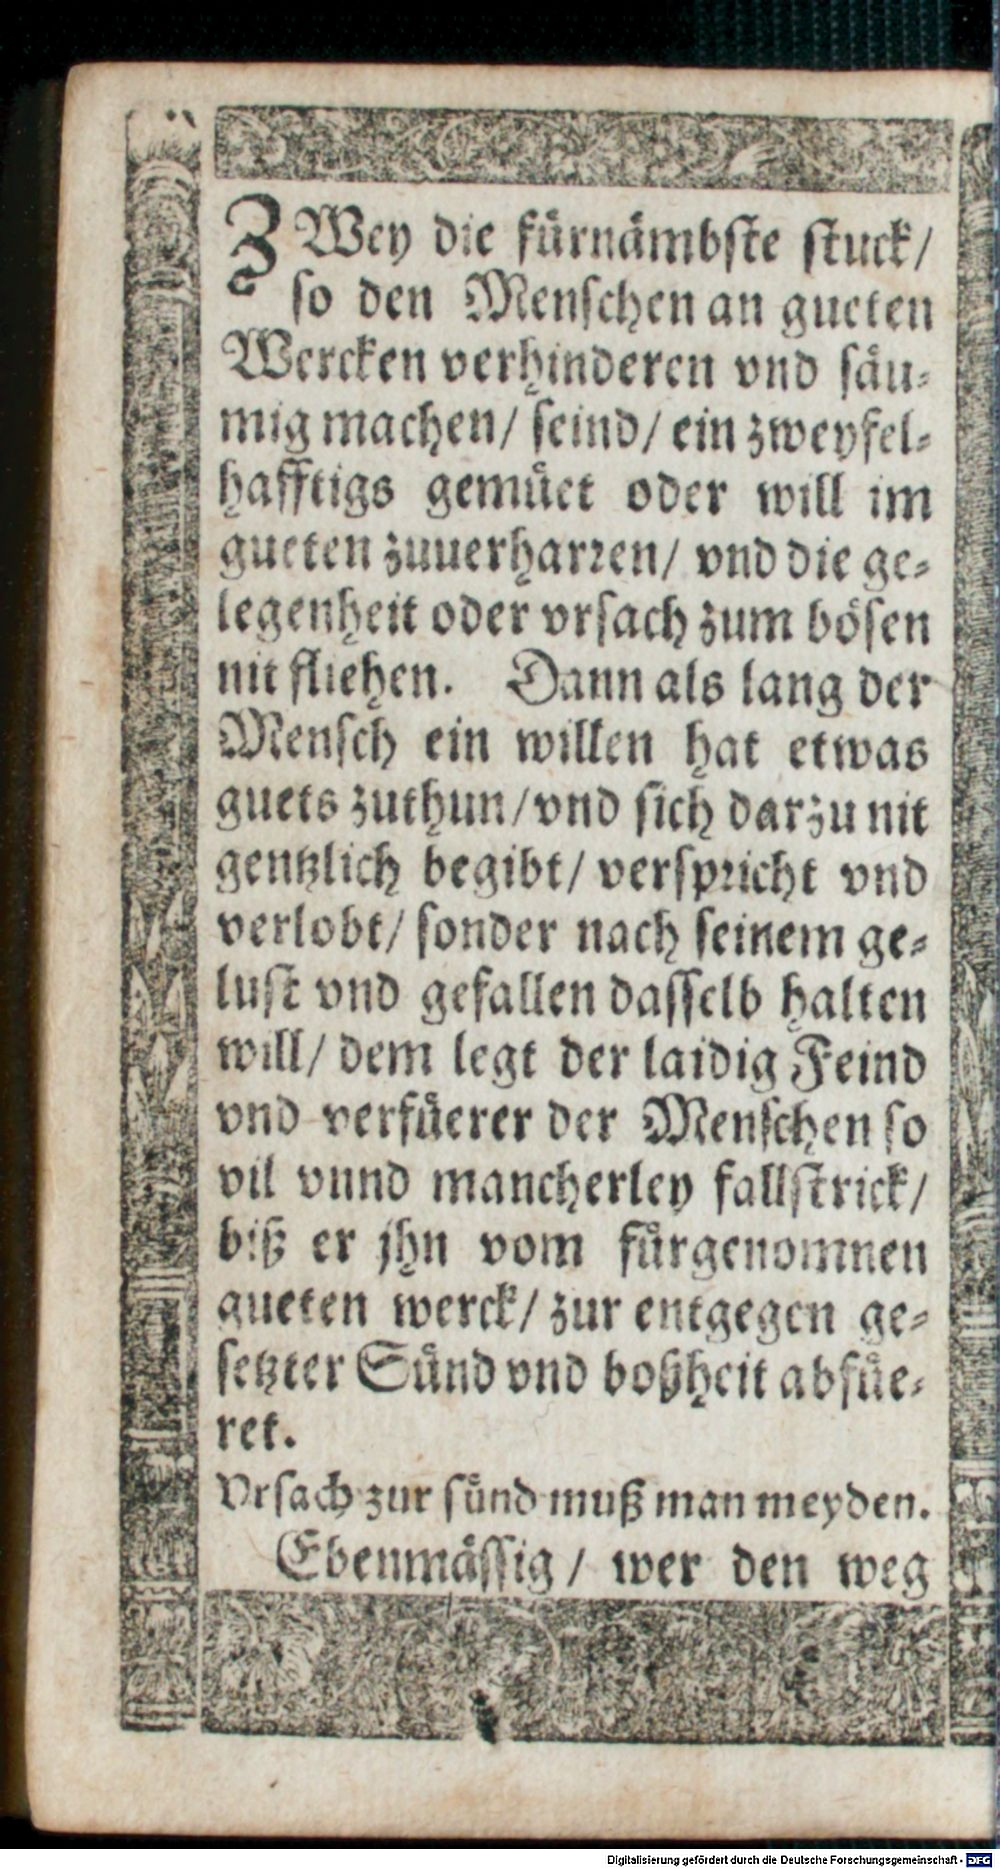 ZWey die fürnämbste stuck/
so den Menschen an gueten
Wercken verhinderen vnd säu-
mig machen/ seind/ ein zweyfel-
hafftigs gemüet oder will im
gueten zuuerharren/ vnd die ge-
legenheit oder vrsach zum bösen
nit fliehen. Dann als lang der
Mensch ein willen hat etwas
guets zuthun/ vnd sich darzu nit
gentzlich begibt/ verspricht vnd
verlobt/ sonder nach seinem ge-
lust vnd gefallen dasselb halten
will/ dem legt der laidig Feind
vnd verfüerer der Menschen so
vil vnnd mancherley fallstrick/
biß er jhn vom fürgenomnen
gueten werck/ zur entgegen ge-
setzter Sünd vnd boßheit abfüe-
ret.
Vrsach zur sünd muß man meyden.
Ebenmässig/ wer den weg
Digitalisierung gefördert durch die Deutsche Forschungsgemeinschaft - DFG